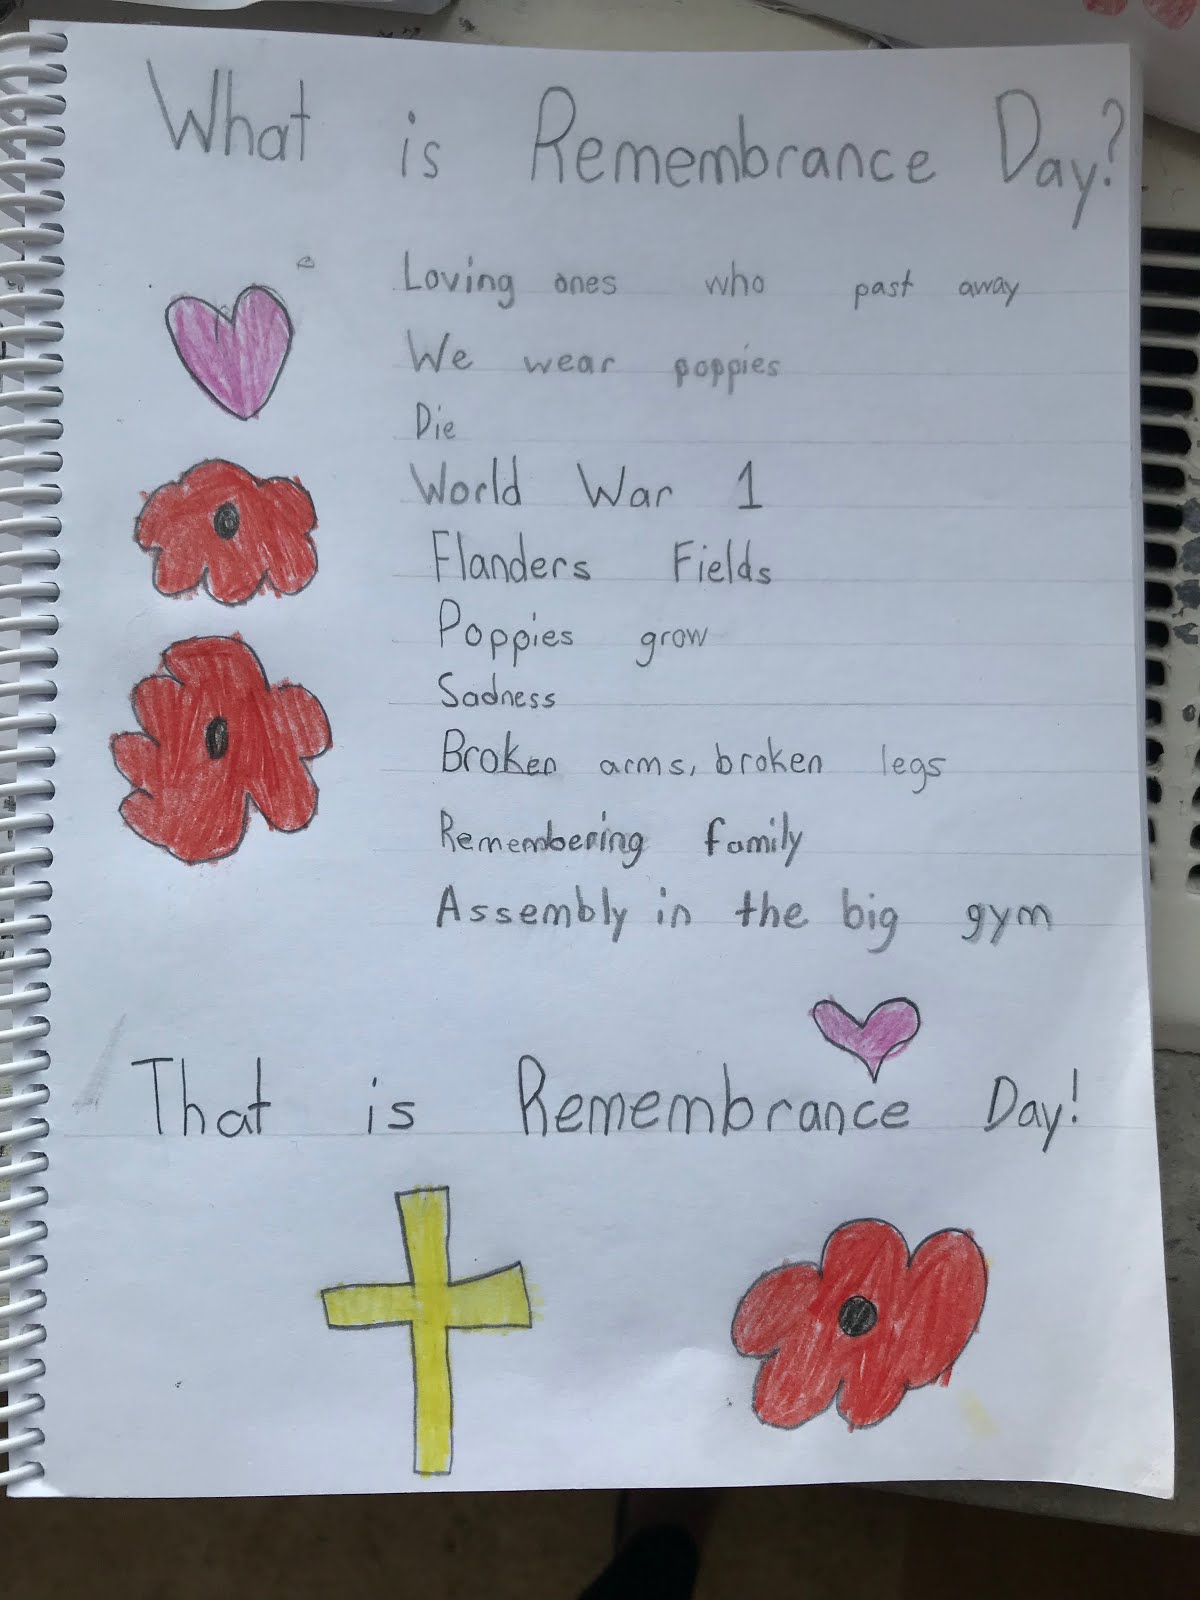 What is Remembrance Day?
Loving ones who past away
We wear poppies
Die
World War 1
Flanders Fields
Poppies grow
Sadness
Broken arms, broken legs
Remembering family
Assembly in the big gym
That is Remembrance Day!